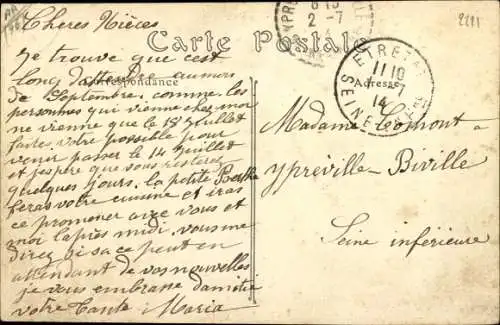 Chères Nièces
Je trouve que cest
long dattendre aumois
de Septembre comme les
personnes qui vienne chez moi
ne vienne que le 18 Juillet
faite votre possible pour
venir passer le 14 Juillet
et jespere que vous resterez
quelques jours. la petite Berthe
feras votre cuisine et iras
ce promener avec vous et
moi laprès midi, vous me
direz si sa ce peut en
attendant de vos nouvelles
je vous embrasse damitié
votre Tante Maria
Carte Postale
Correspondance
Adresse
2-7
ETRETAT
11 10
-7
14
SEINE
2111
Madame Comont
Ypréville-Biville
Seine inférieure